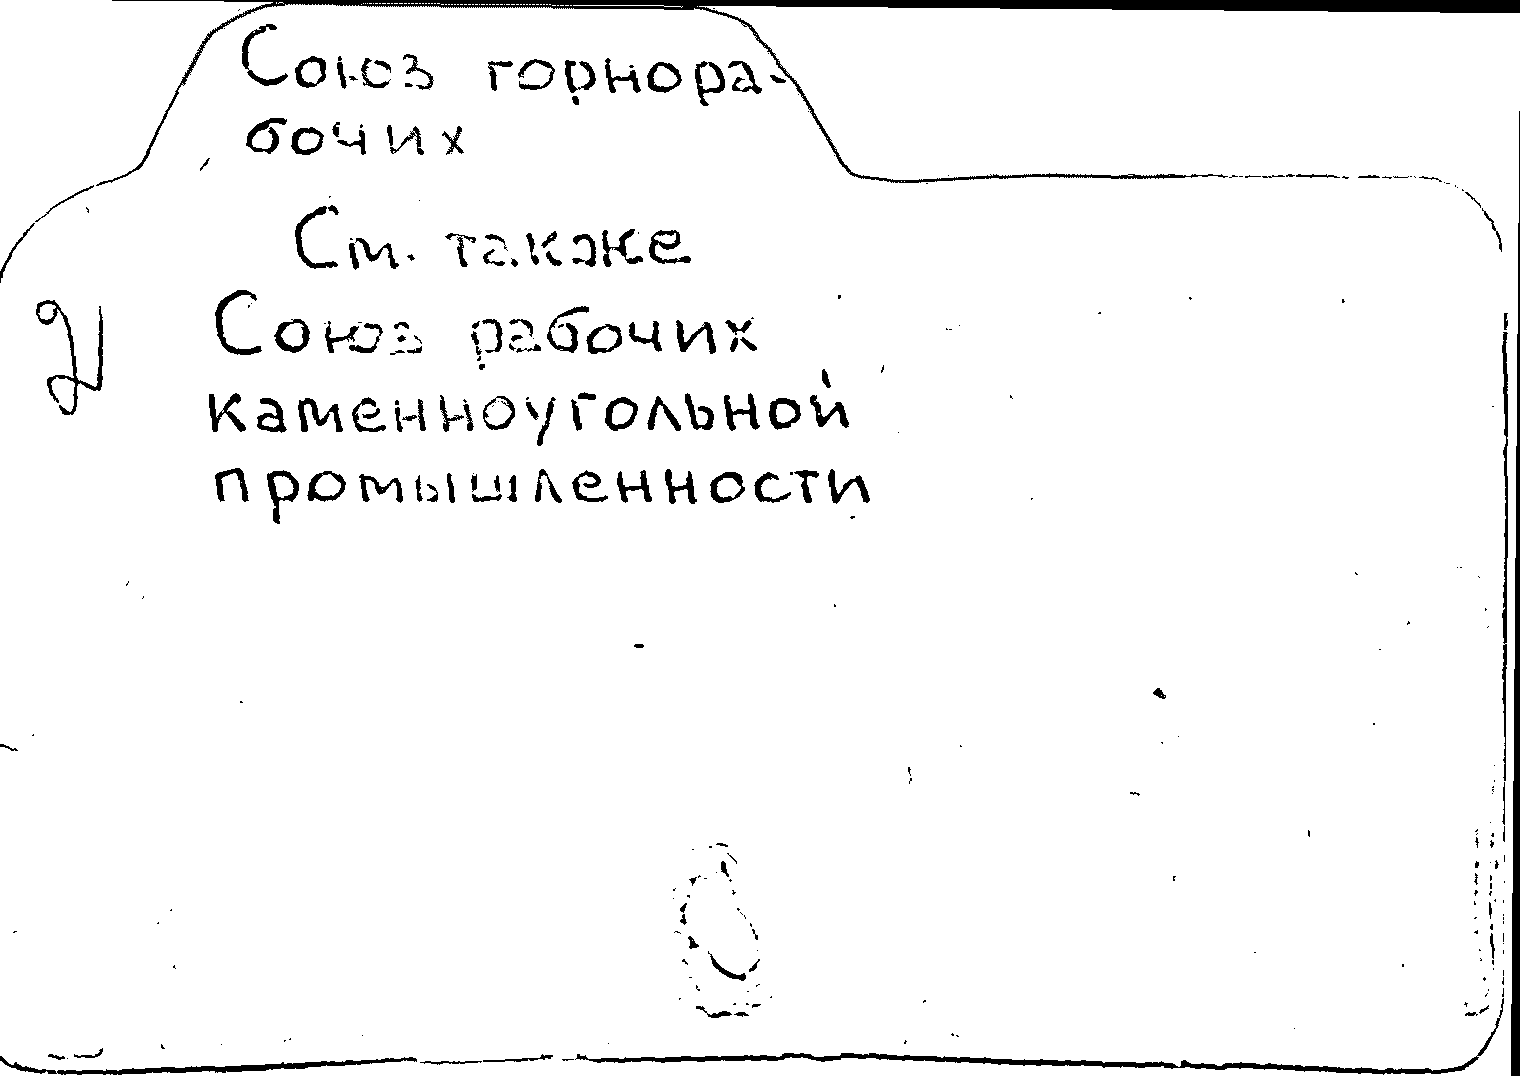 Союз горнора-
бочих
См. также
Союз рабочих
каменноугольной
промышленности